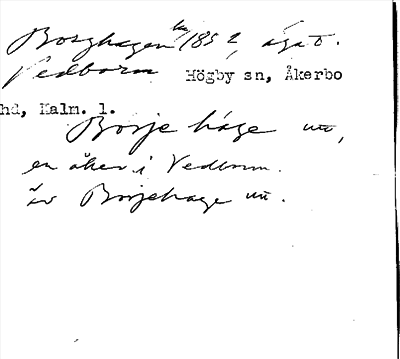 Borghagen 1852, ägat.
Vedborm Högby sn, Åkerbo
hd, Kalm. l.
Börje hage utt,
en åker i Vedborm.
äv Börjehage utt.